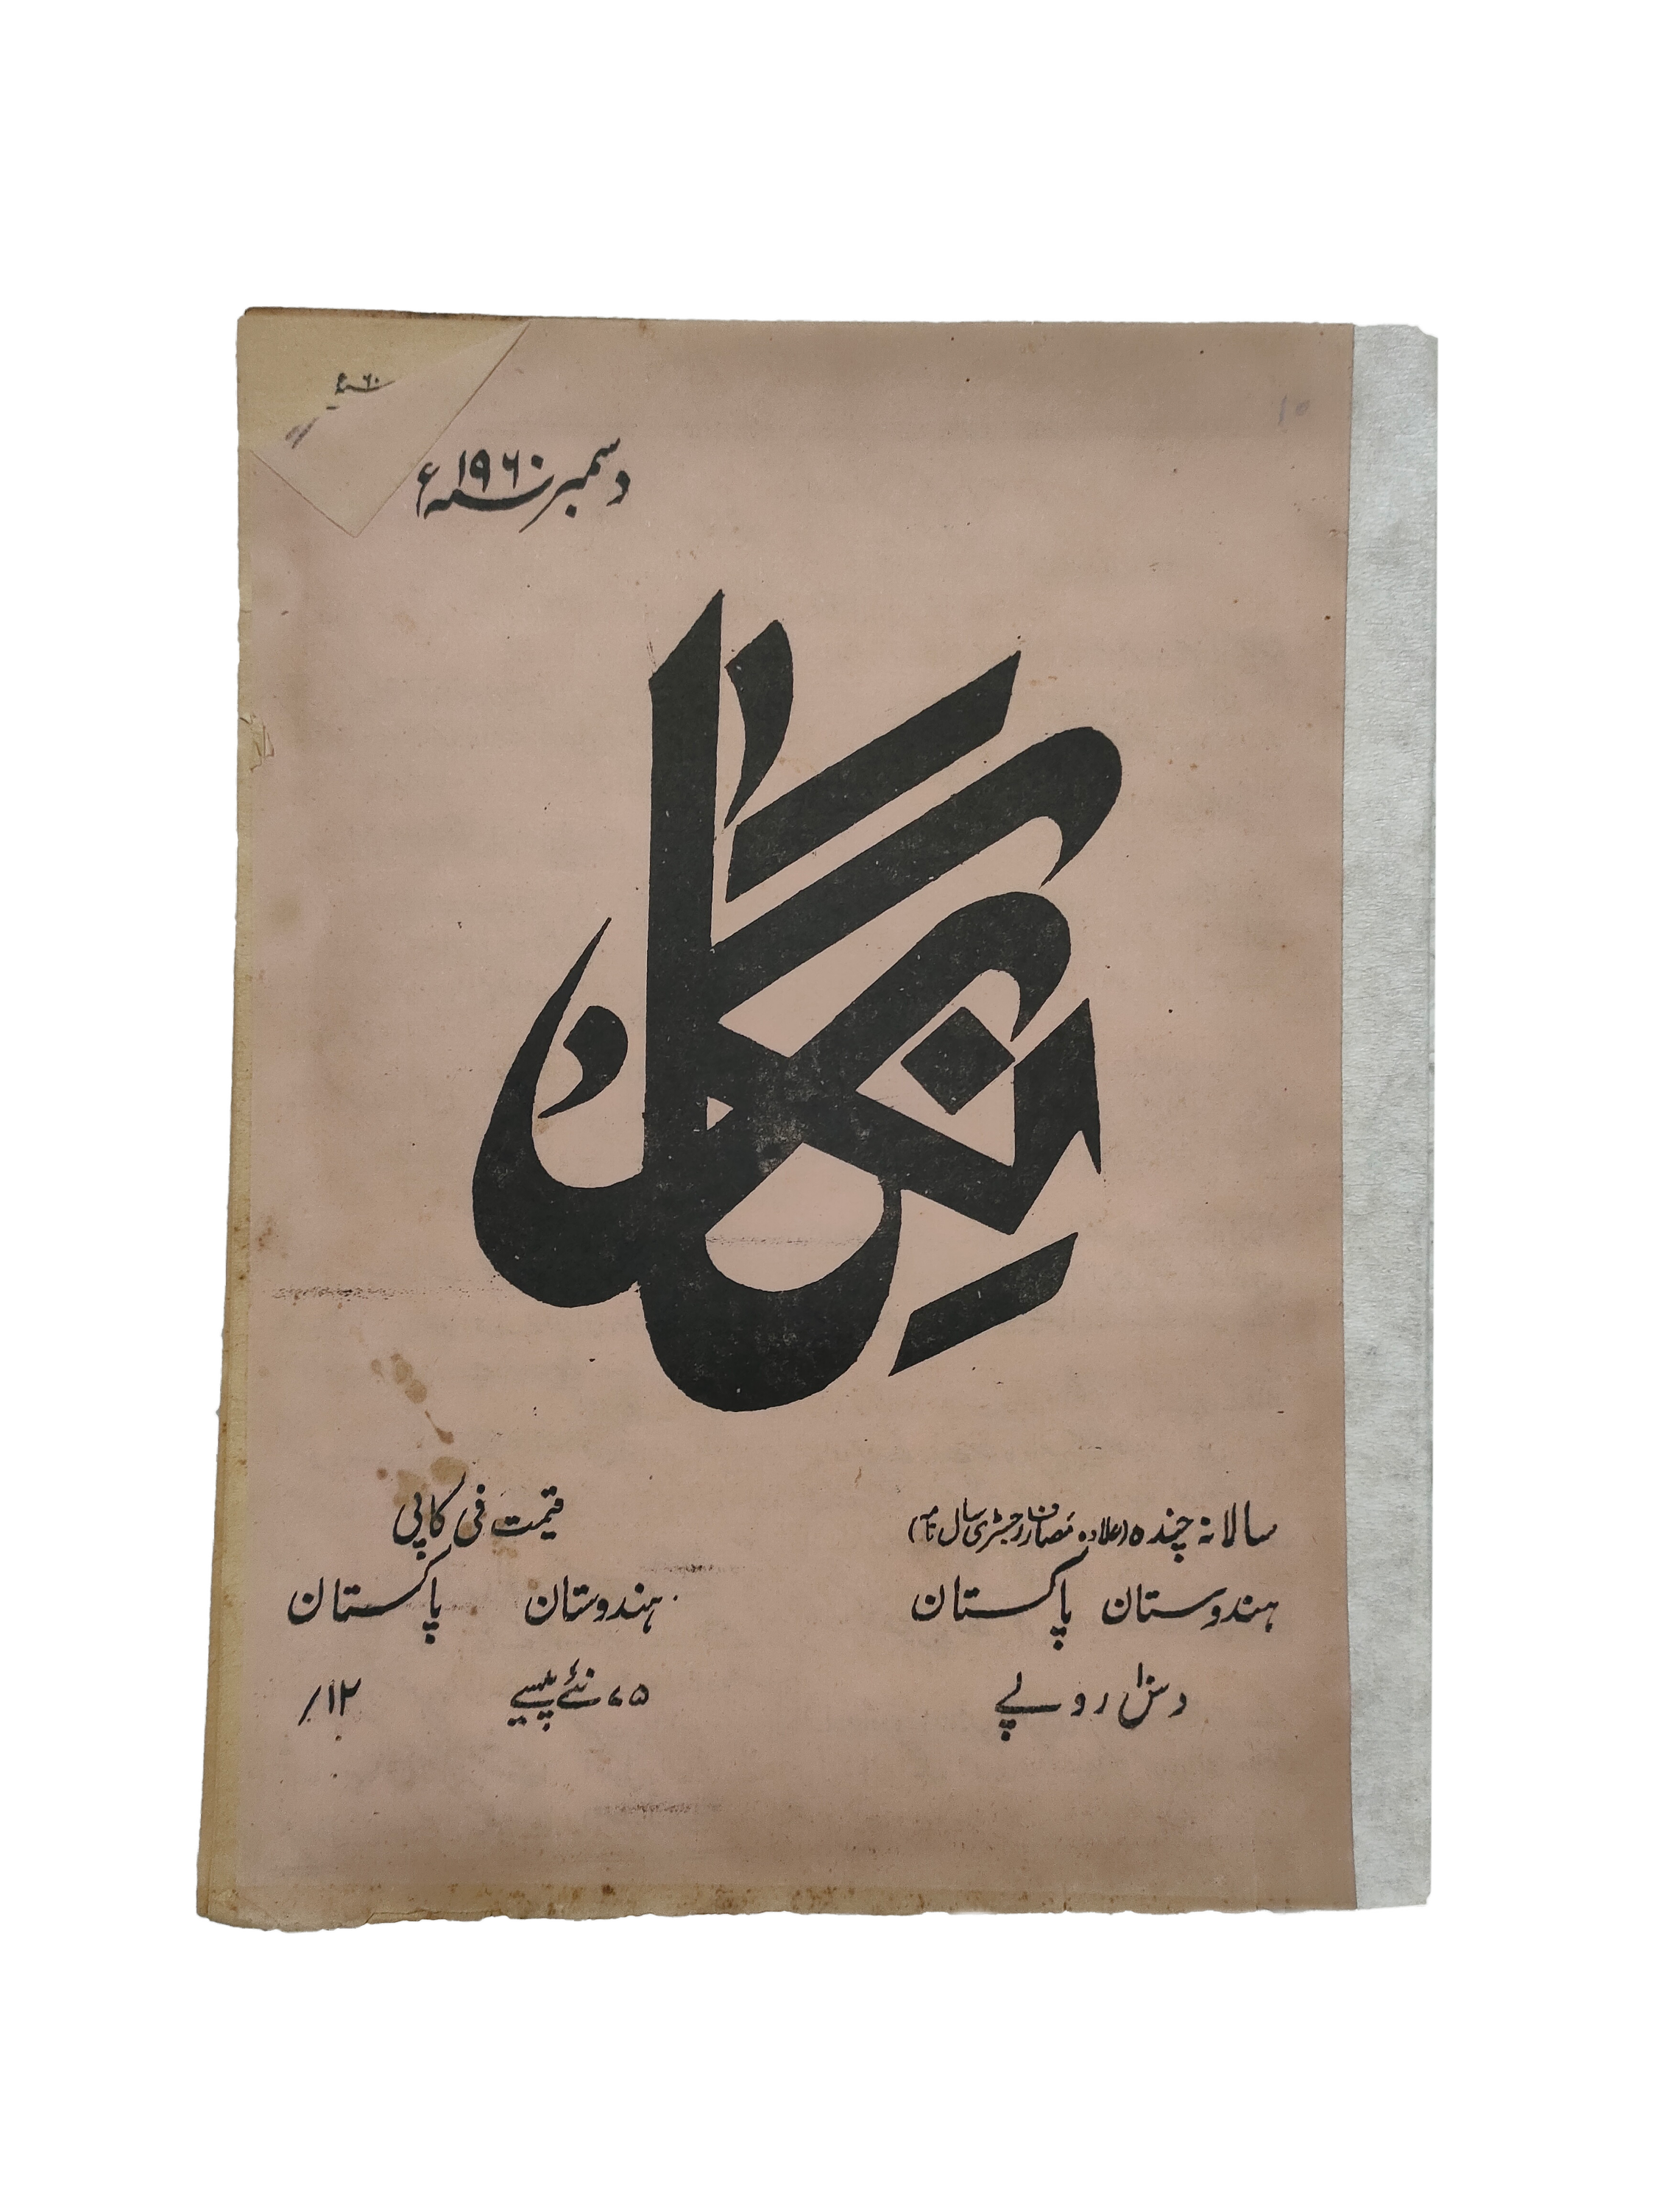 ۶۰ء
دسمبر ۱۹۶۰ء
نگار
سالانہ چندہ (علاوہ مصارف رجسٹری سال نامہ)
ہندوستان پاکستان
دس روپے
قیمت فی کاپی
ہندوستان پاکستان
۷۵ نئے پیسے ۱۲/